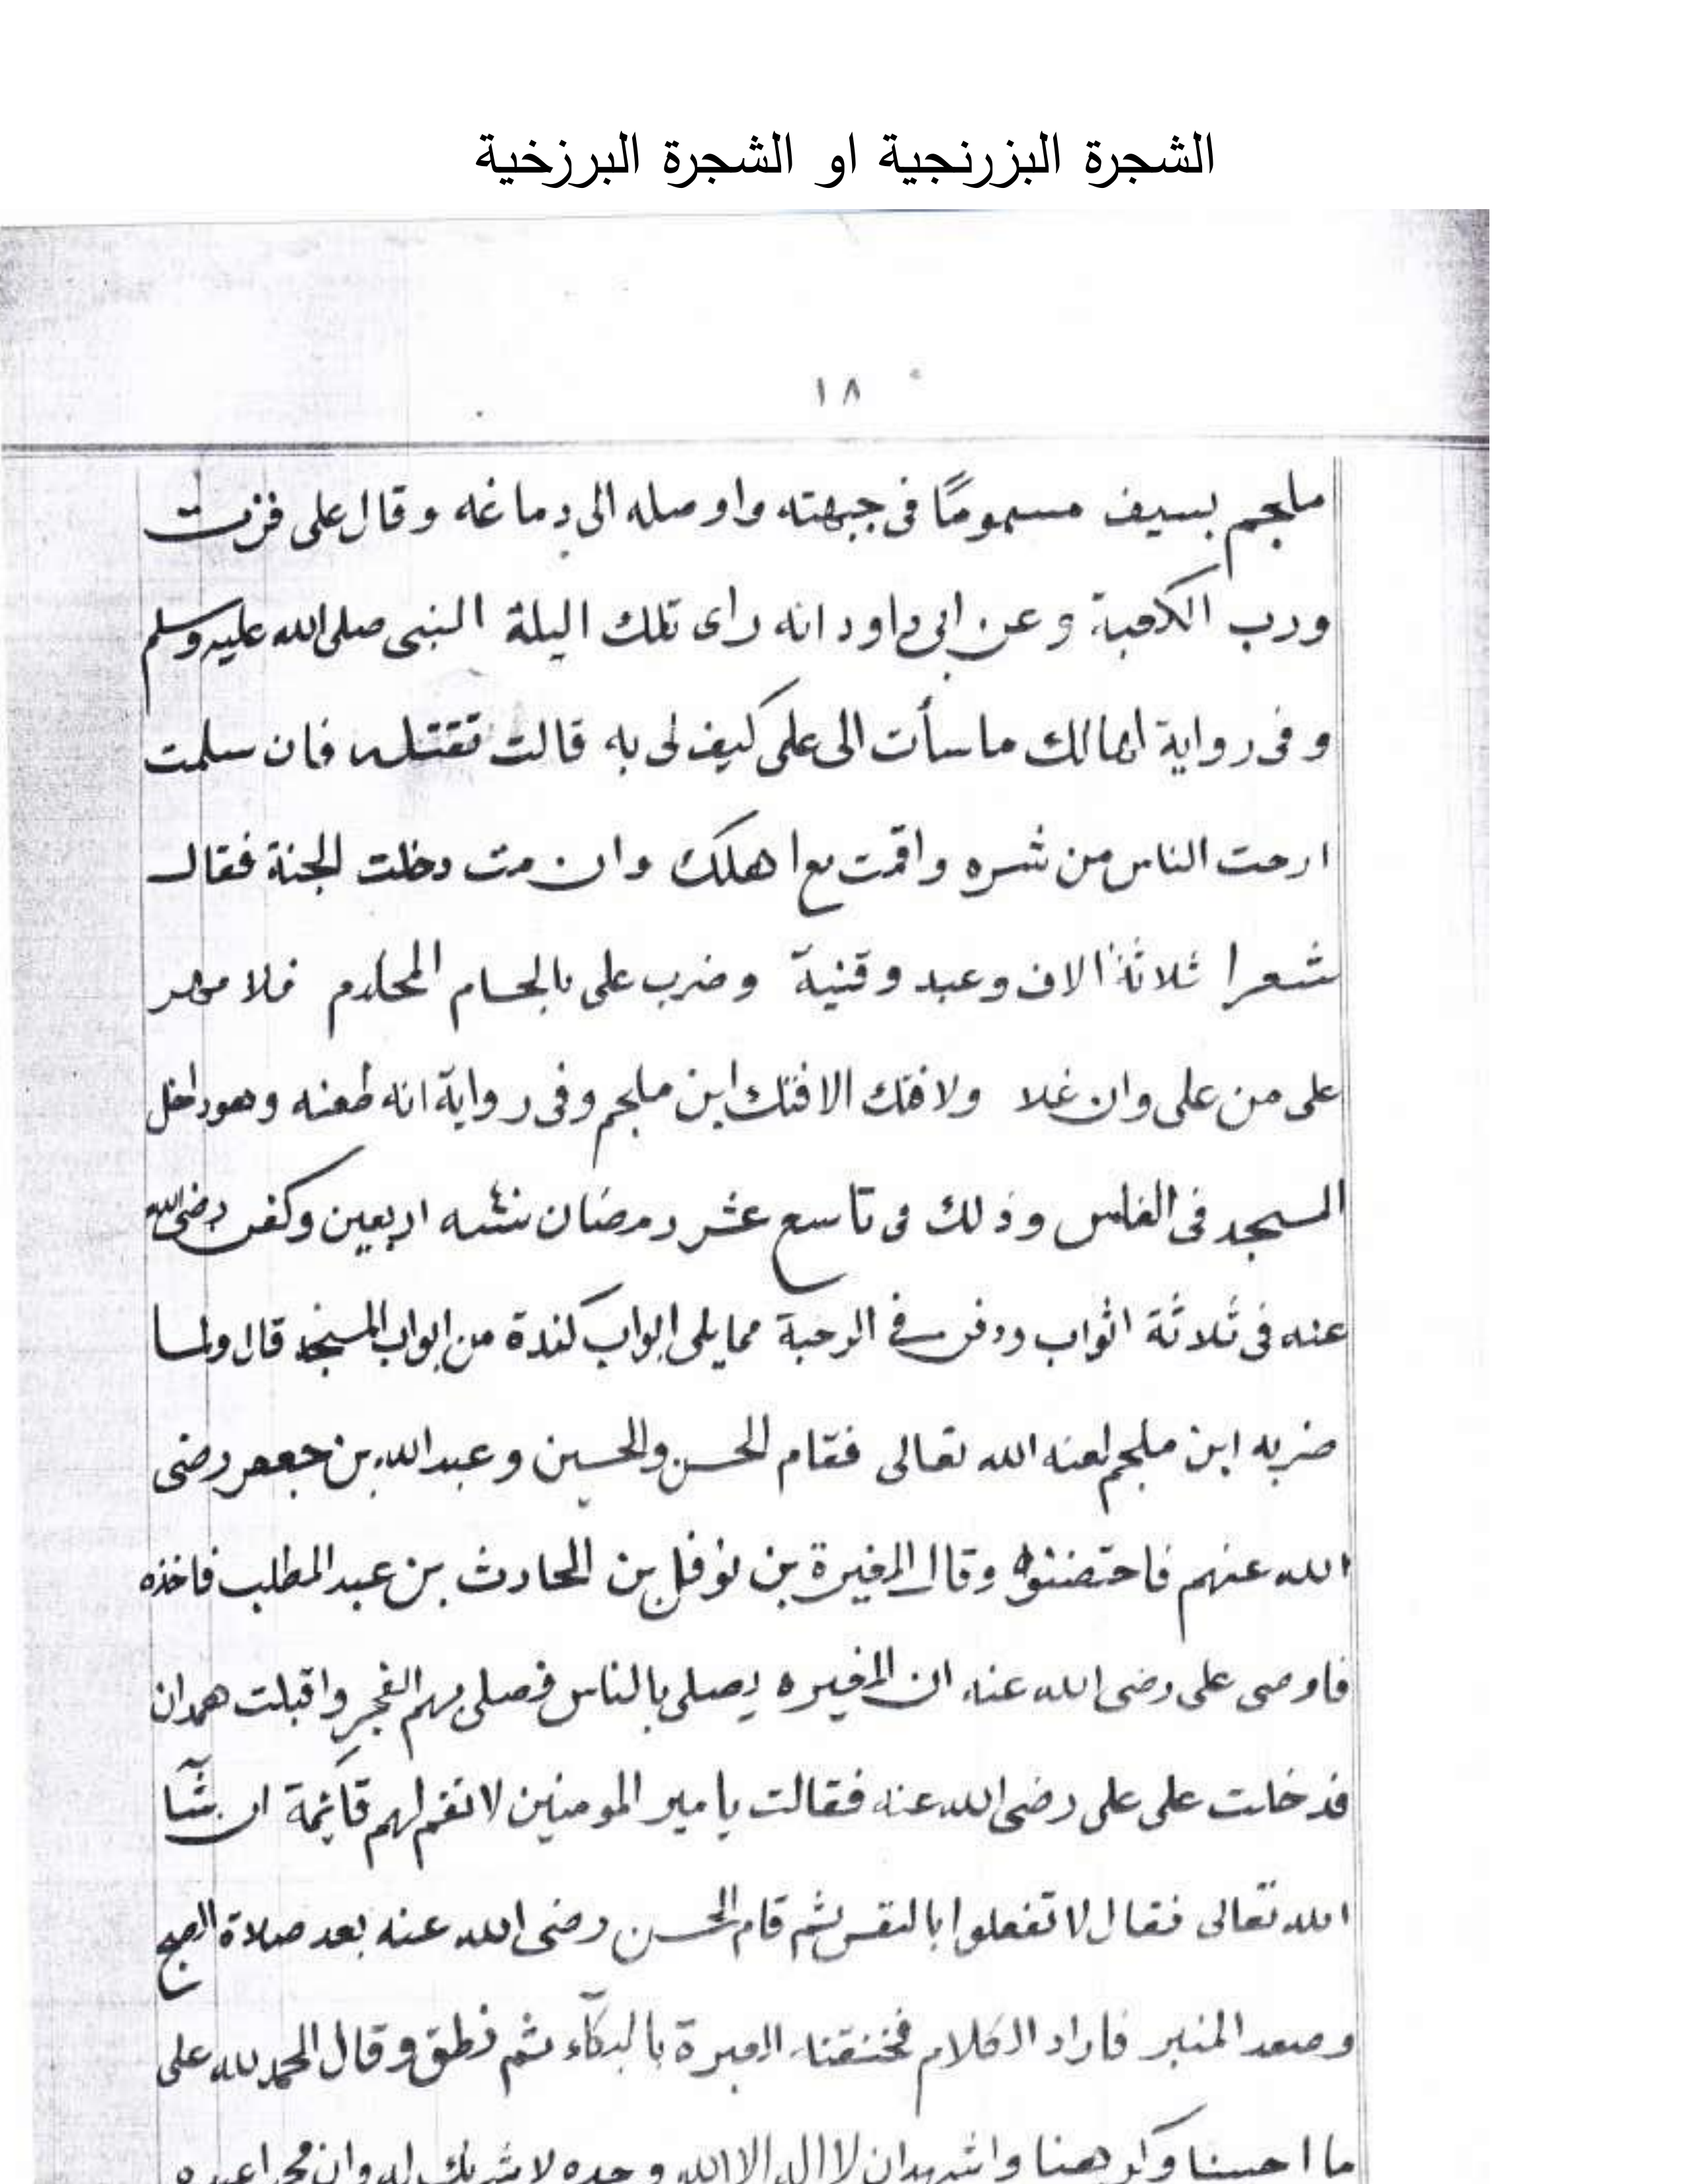 الشجرة البزرنجية او الشجرة البرزخية
١٨
ملجم بسيف مسمومًا فى جبهته واوصله الى دماغه وقال على فزت
ورب الكعبة وعن ابى داود انه راى تلك اليلة النبى صلى الله عليه وسلم
وفى رواية لك ماسأت الى على كيف لى به قالت تقتله فان سلمت
ارحت الناس من شره واقمت مع اهلك وان مت دخلت الجنة فقال
شعرا ثلاثة الاف وعبد وقنية وضرب على بالحسام فلا مهر
على من على وان غلا ولا فتك الا فتك ابن ملجم وفى رواية انه طعنه وهو داخل
المسجد فى الغلس وذلك فى تاسع عشر رمضان اربعين وكفن رضى الله
عنه فى ثلاثة اثواب ودفن فى الرحبة ممايلى ابواب كندة من ابواب المسجد قال ولما
ضربه ابن ملجم لعنه الله تعالى فقام الحسن والحسين وعبد الله بن جعفر رضى
الله عنهم فاحتضنوه وقال المغيرة بن نوفل بن الحارث بن عبد المطلب فاخذه
فاوصى على رضى الله عنه ان المغيره يصلى بالناس فصلى بهم الفجر واقبلت همدان
فدخلت على على رضى الله عنه فقالت يا مير المومنين لا تقم لهم قائمة ان شآ
الله تعالى فقال لا تفعلوا ثم قام الحسن رضى الله عنه بعد صلاة الصبح
وصعد المنبر فاراد الكلام فخنقته العبرة بالبكآء ثم نطق وقال الحمد لله على
ما احببنا وكرهنا واشهد ان لا اله الا الله وحده لا شريك له وان محمدا عبده